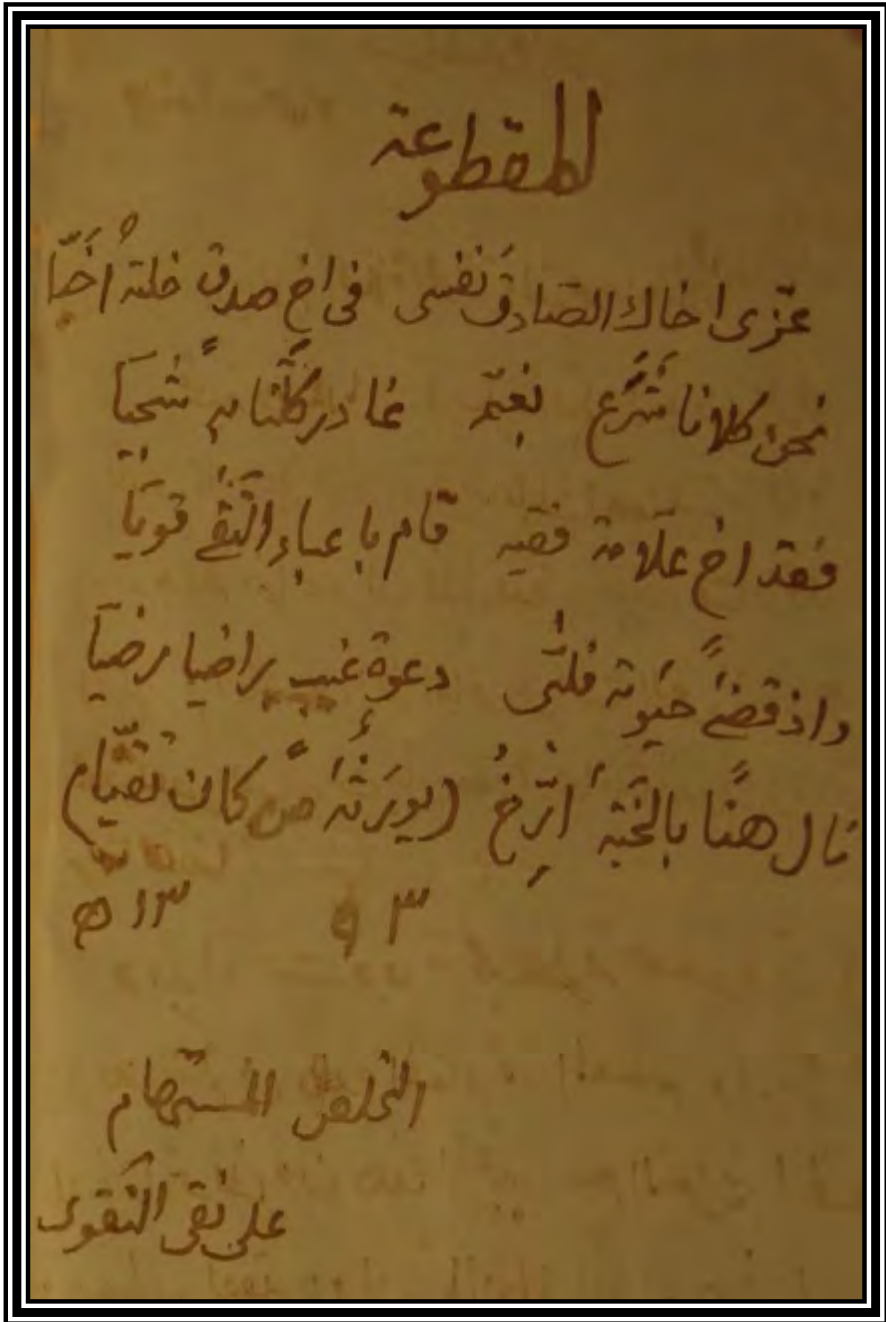 المقطوعة
عزّى اخاك الصّادق نفسى فى اخ صدق خلته أخيّا
نحن كلانا شرع بغمّ غادر كلّنا شجيّا
فقد اخ علّامة فقيه قام باعباء التّقى قويّا
واذ قضىٰ حيوته فلبّى دعوة غيب راضيا رضيّا
نال هنًا بالجنّة أرّخ (يورثها من كان تقيّا)
۹۳ ۱۳ه
المخلص المستهام
على نقى النّقوى